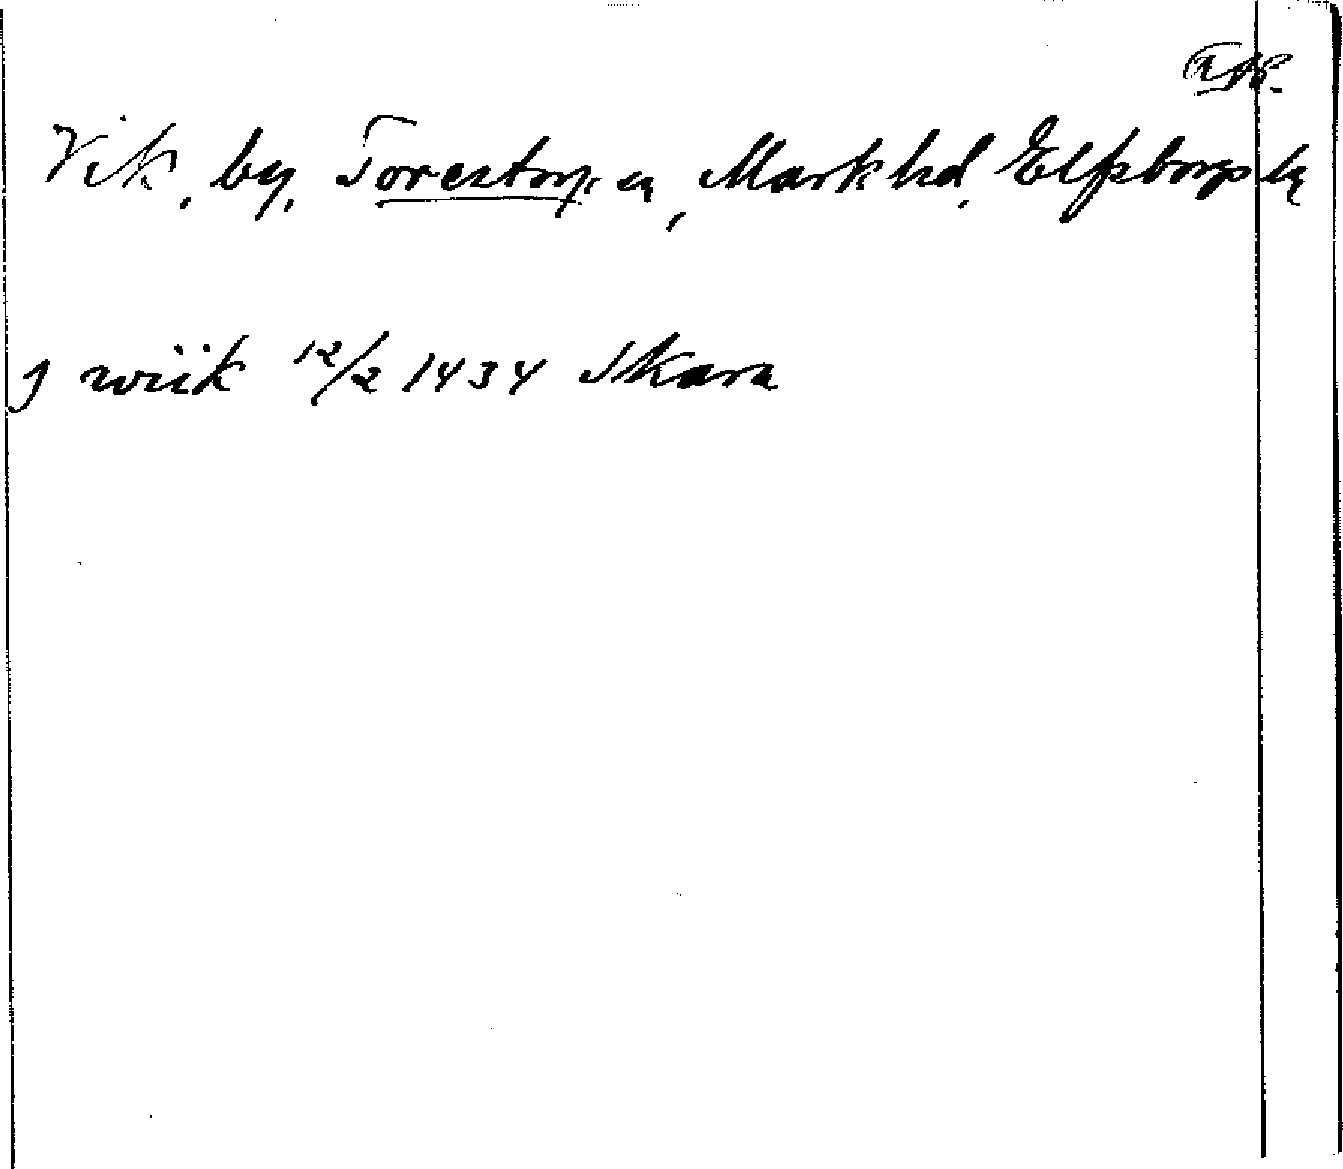 Vik, by, Torestorp sn, Mark hd, Elfsborgs ln
J wiik 12/2 1434 Skara